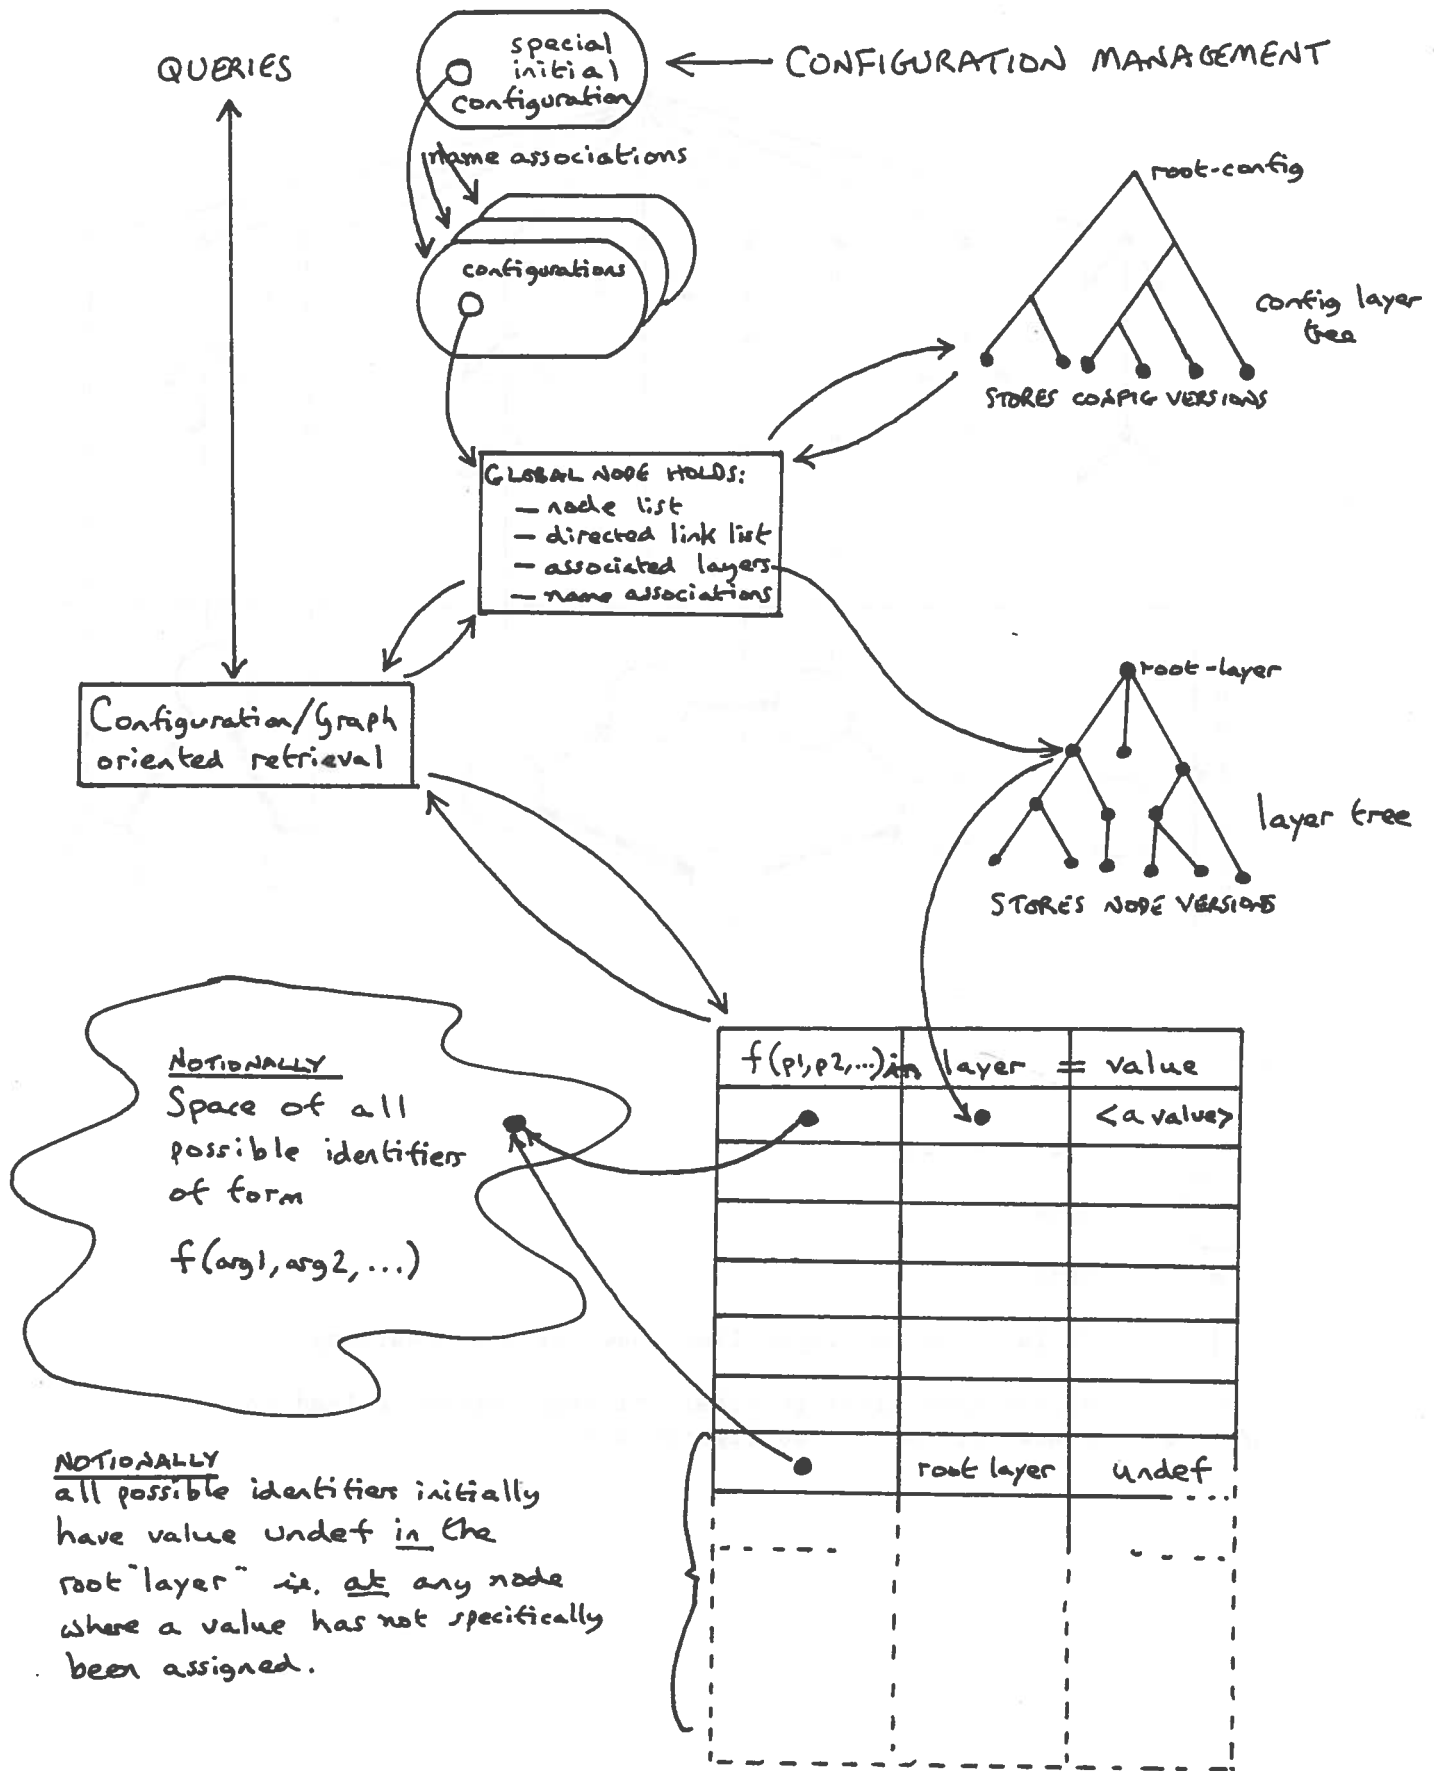 QUERIES
special
initial
configuration
CONFIGURATION MANAGEMENT
name associations
configurations
root-config
config layer
tree
STORES CONFIG VERSIONS
GLOBAL NODE HOLDS:
— node list
— directed link list
— associated layers
— name associations
Configuration/Graph
oriented retrieval
root-layer
layer tree
STORES NODE VERSIONS
NOTIONALLY
Space of all
possible identifiers
of form
f(arg1, arg2, ...)
f(p1,p2,...) in layer = value
<a value>
root layer undef
NOTIONALLY
all possible identifiers initially
have value undef in the
root "layer" i.e. at any node
where a value has not specifically
been assigned.